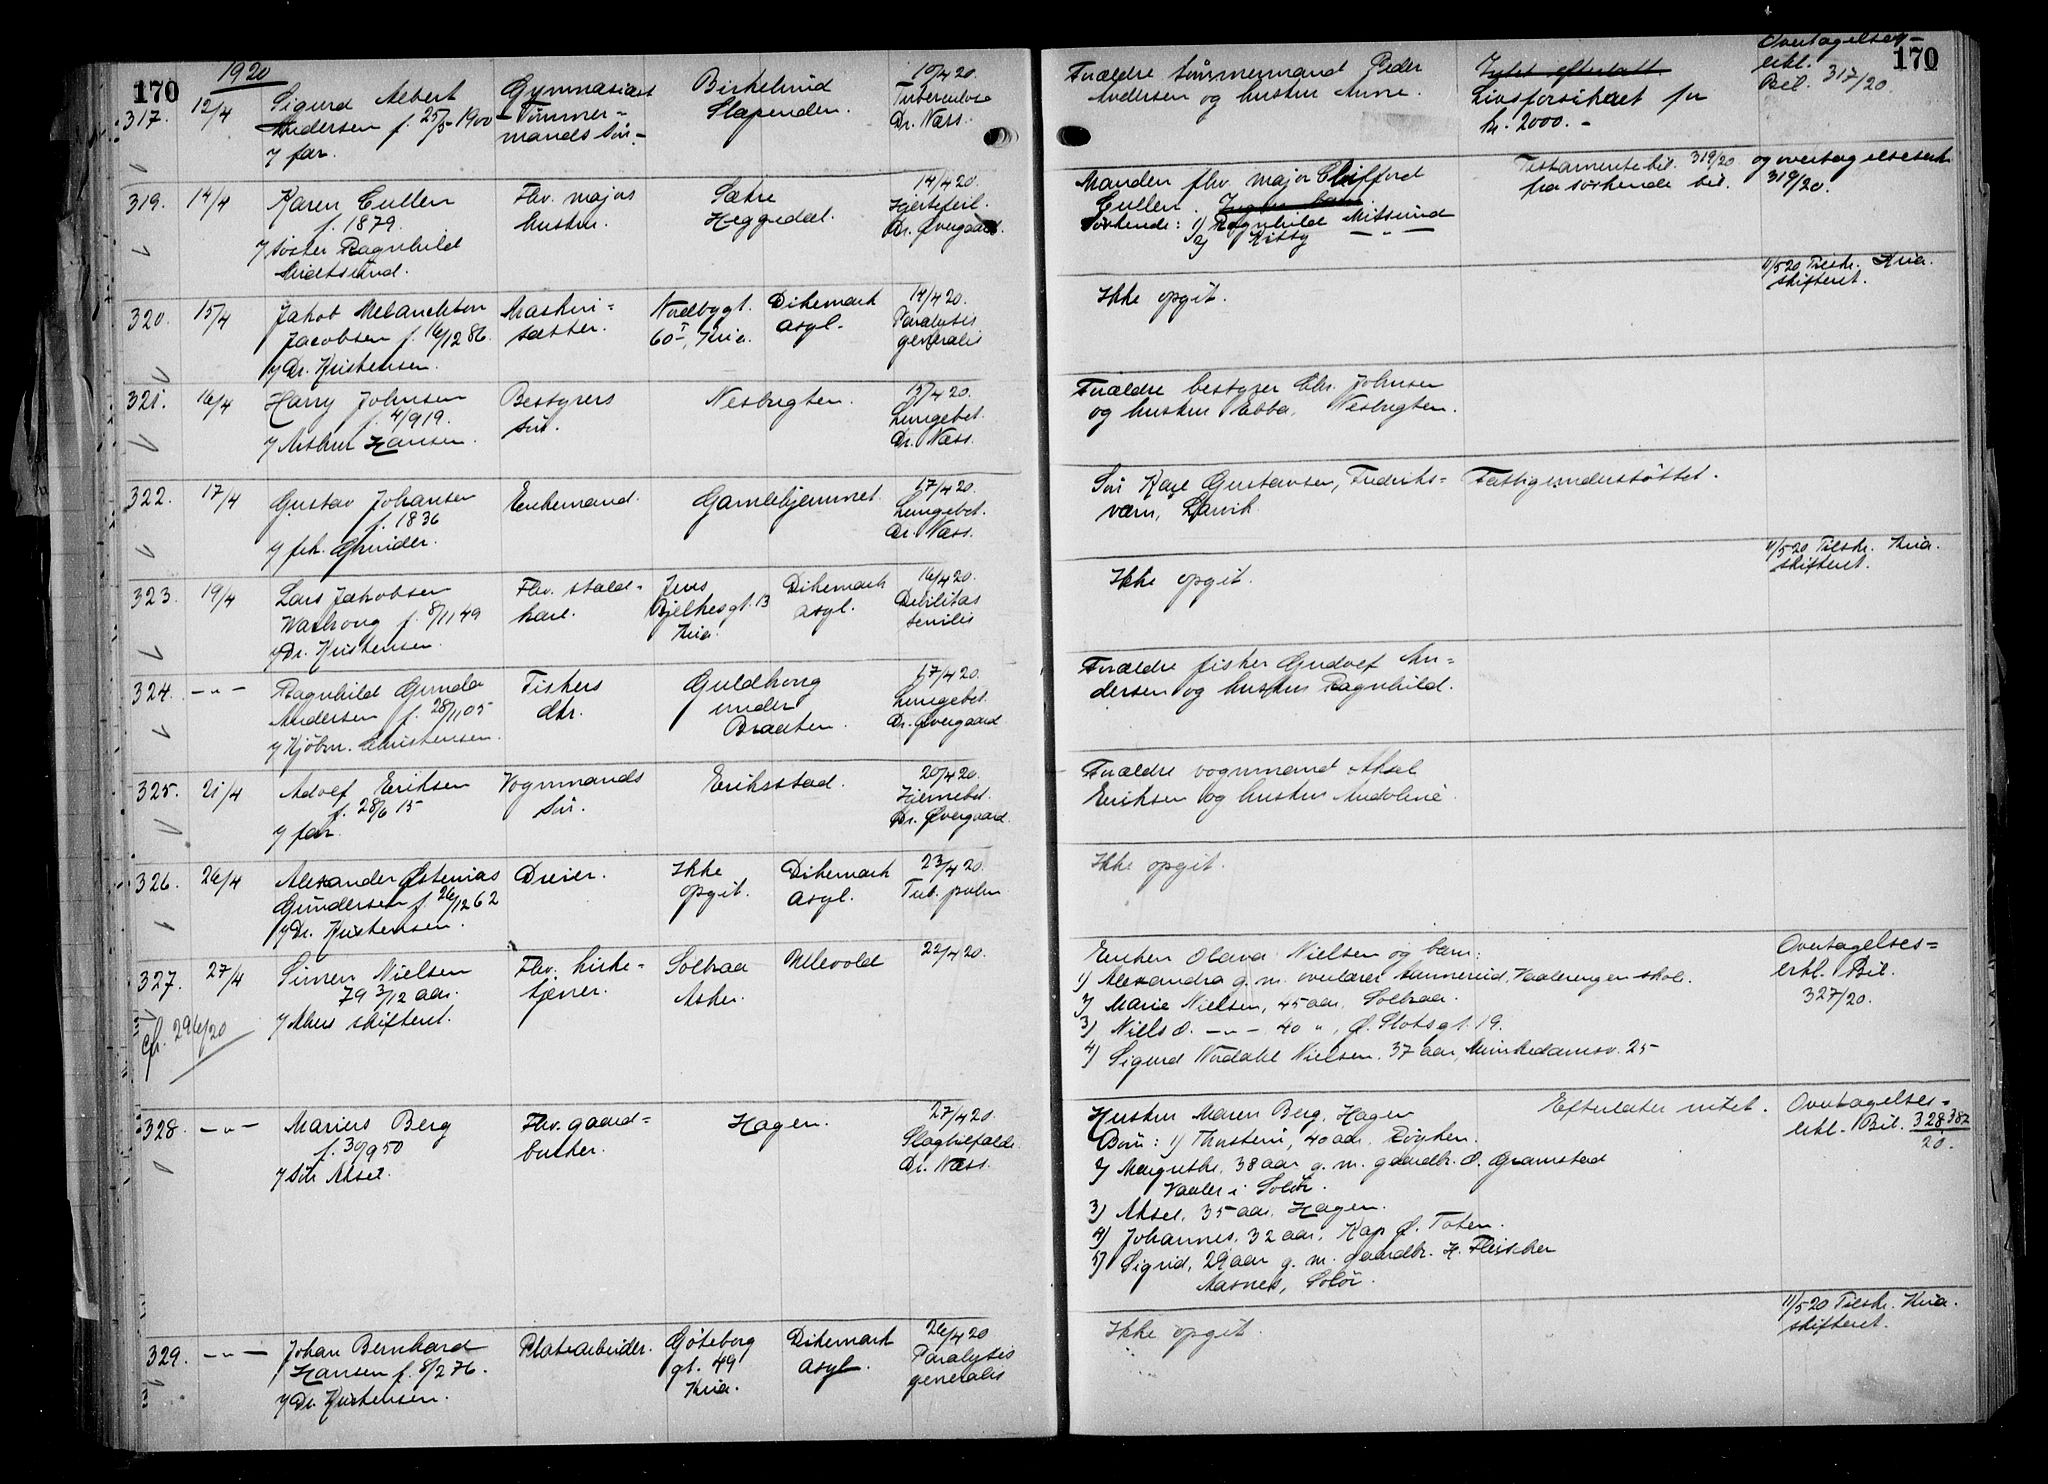 170
1920
317. 12/4 Sigurd Albert Gymnasiast Birkelund 10/4 20.
Andersen f. 25/5 1900 - Tømmer= Slependen. Tuberculose
7 far. mands søn. - Dr. Næss.
319. 14/4 Karen Cullen Fhv. majors Sætre 14/4 20.
f. 1879. hustru. Heggedal. Hjertefeil.
7 søster Ragnhild Dr. Øvergaard.
Midtsund.
320. 15/4 Jakob Melanchton Maskin= Nordbygt. Dikemark 14/4 20.
Jacobsen f. 16/12 86. sætter. 60 I, Kria. asyl. Paralysis
7 Dr. Kristensen. generalis
321. 16/4 Harry Johnsen Bestyrers Nesbugten. 15/4 20.
f. 4/9 19. søn. Lungebet.
7 Arthur Hansen. Dr. Næss.
322. 17/4 Gustav Johansen Enkemand. Gamlehjemmet. 17/4 20.
f. 1836 Lungebet.
7 frk. Grinder. Dr. Næss.
323. 19/4 Lars Jakobsen Fhv. stald= Jens Dikemark 16/4 20.
f. 8/11 49 karl. Bjelkesgt. 13 asyl. Debilitas
7 Dr. Kristensen. Kria. senilis
324. -"- Ragnhild Gunda Fiskers Guldhong 17/4 20.
Andersen f. 28/1 05 dtr. under Lungebet.
7 Kjøbm. Christensen. Braaten. Dr. Øvergaard
325. 21/4 Adolf Eriksen Vognmands Eriksstad. 20/4 20.
f. 28/6 15 søn. Hjernebet.
7 far. Dr. Øvergaard.
326. 26/4 Alexander Østenius Dreier. Ikke Dikemark 23/4 20.
Gundersen f. 26/12 62 opgit. asyl. Tub. pulm.
7 Dr. Kristensen.
327. 27/4 Simen Nielsen Fhv. kirke= Solbraa Ullevold 22/4 20.
79 3/12 aar. tjener. Asker.
7 Akers skifteret.
cfr. 296/20
328. -"- Marius Berg Fhv. gaard= Hagen. 27/4 20.
f. 30/9 50 bruker. Slagtilfælde
7 søn Aksel. Dr. Næss.
329. -"- Johan Bernhard Platearbeider. Göteborg Dikemark 26/4 20
Hansen f. 8/2 76. gt. 49 asyl. Paralysis
7 Dr. Kristensen. Kria. generalis
170
Forældre tømmermand Peder Intet efterlatt Overtagelses-
Andersen og hustru Anne. Livsforsikret for erkl.
kr. 2000.- Bil. 317/20.
Manden fhv. major Clifford Testamente bil. 319/20 og overtagelseserkl.
Cullen. fra søskende bil. 319/20.
Søskende: 1) Ragnhild Mitsund
2) Kitty -"-
Ikke opgit. 11/5 20 Tilskr. Kria.
skifteret.
Forældre bestyrer Chr. Johnsen
og hustru Ebba, Nesbugten.
Søn Karl Gustavsen, Fredriks= Fattigunderstøttet.
værn, Larvik.
Ikke opgit. 11/5 20 Tilskr. Kria.
skifteret.
Forældre fisker Gudolf An=
dersen og hustru Ragnhild.
Forældre vognmand Aksel
Eriksen og hustru Andoline
Ikke opgit.
Enken Olava Nielsen og barn: Overtagelses=
1) Alexandra g. m. overlærer Lunnerud, Vaalerengen skole. erkl. Bil.
2) Marie Nielsen, 45 aar, Solbraa. 327/20.
3) Nils O. -"- 40 ", Ø. Slotsgt. 19.
4) Sigurd Nordahl Nielsen, 37 aar, Munkedamsv. 25
Hustru Maren Berg, Hagen Efterlater intet. Overtagelses=
Børn: 1) Thorstein, 40 aar, Røyken. erkl. Bil. 328 387/20.
2) Margrethe, 38 aar g. m. gaardbr. O. Gramstad
Vaaler i Solør.
3) Aksel, 35 aar, Hagen.
4) Johannes, 32 aar, Kap Ø. Toten.
5) Sigrid, 29 aar g. m. gaardbr. H. Fleischer
Aasnes, Solør.
Ikke opgit. 11/5 20 Tilskr. Kria.
skifteret.